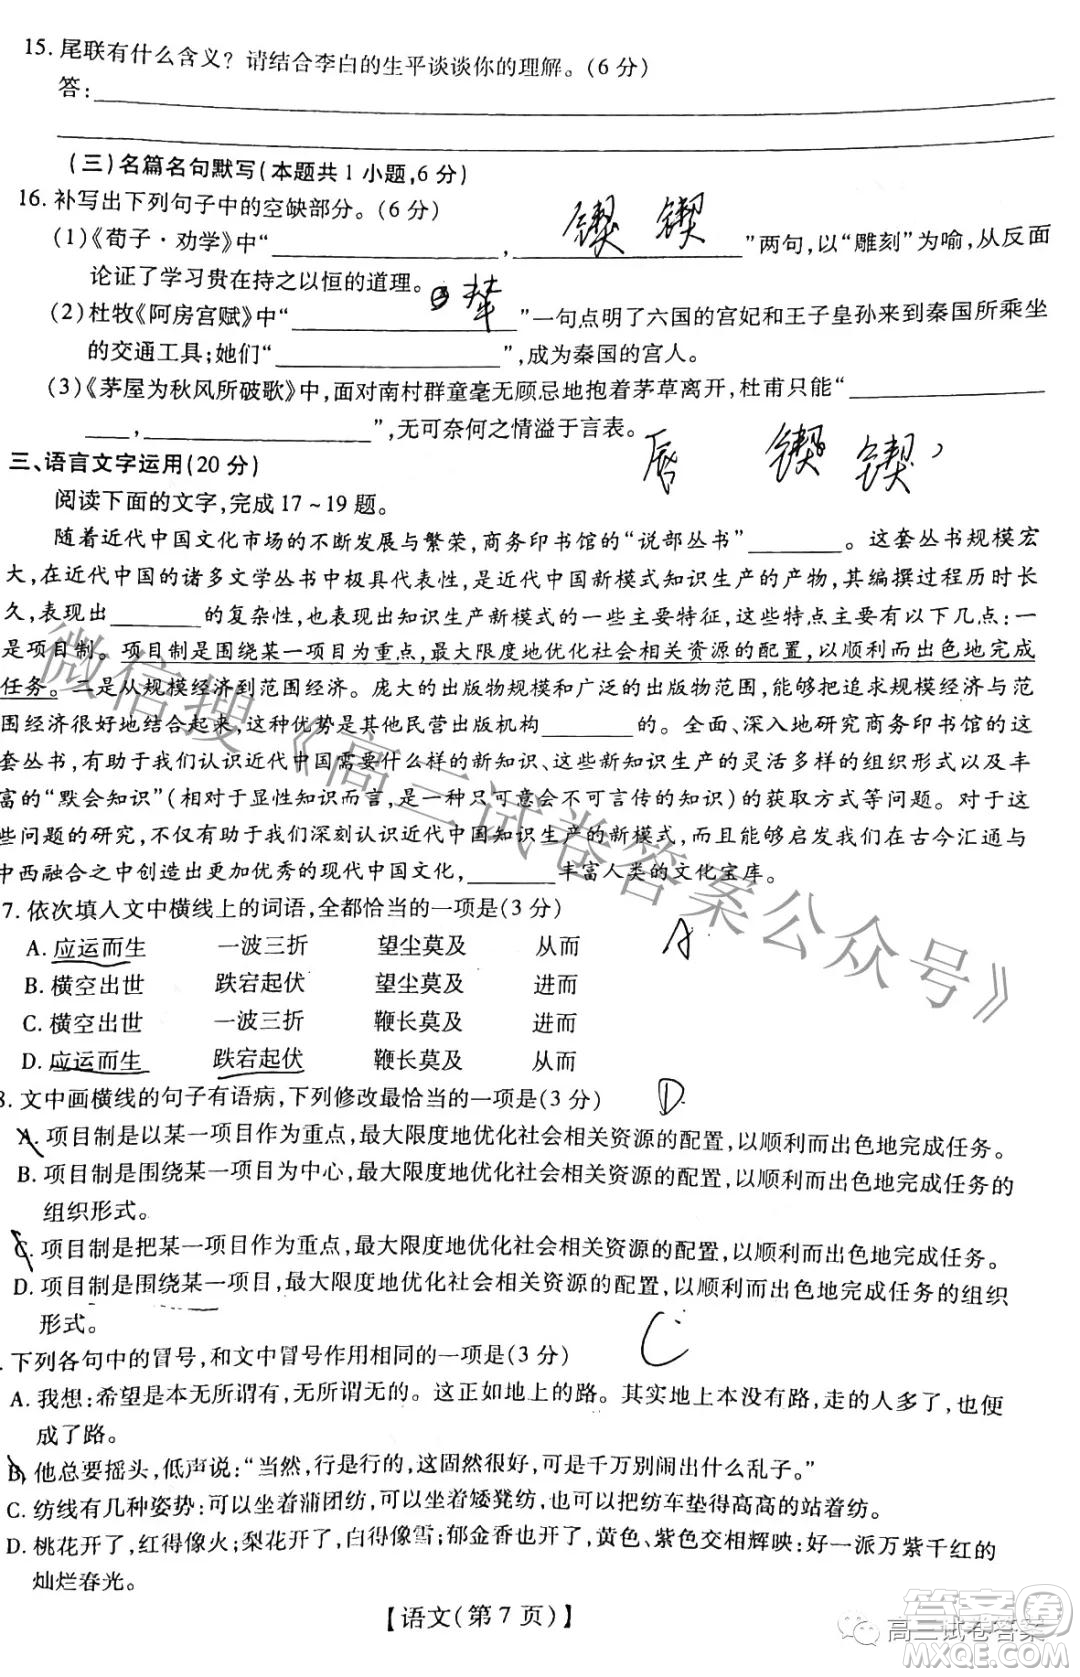 15. 尾联有什么含义？请结合李白的生平谈谈你的理解。(6 分)
答:
(三)名篇名句默写(本题共 1 小题,6 分)
16. 补写出下列句子中的空缺部分。(6 分)
(1)《荀子·劝学》中“____，____”两句,以“雕刻”为喻,从反面
锲 锲
论证了学习贵在持之以恒的道理。
辇
(2)杜牧《阿房宫赋》中“____”一句点明了六国的宫妃和王子皇孙来到秦国所乘坐
的交通工具;她们“____”,成为秦国的宫人。
(3)《茅屋为秋风所破歌》中,面对南村群童毫无顾忌地抱着茅草离开,杜甫只能“____
____,____”,无可奈何之情溢于言表。
唇 锲 锲,
三、语言文字运用(20 分)
阅读下面的文字,完成 17～19 题。
随着近代中国文化市场的不断发展与繁荣,商务印书馆的“说部丛书”____。这套丛书规模宏
大,在近代中国的诸多文学丛书中极具代表性,是近代中国新模式知识生产的产物,其编撰过程历时长
久,表现出____的复杂性,也表现出知识生产新模式的一些主要特征,这些特点主要有以下几点:一
是项目制。项目制是围绕某一项目为重点,最大限度地优化社会相关资源的配置,以顺利而出色地完成
任务。二是从规模经济到范围经济。庞大的出版物规模和广泛的出版物范围,能够把追求规模经济与范
围经济很好地结合起来,这种优势是其他民营出版机构____的。全面、深入地研究商务印书馆的这
套丛书,有助于我们认识近代中国需要什么样的新知识、这些新知识生产的灵活多样的组织形式以及丰
富的“默会知识”(相对于显性知识而言,是一种只可意会不可言传的知识)的获取方式等问题。对于这
些问题的研究,不仅有助于我们深刻认识近代中国知识生产的新模式,而且能够启发我们在古今汇通与
中西融合之中创造出更加优秀的现代中国文化,____丰富人类的文化宝库。
7. 依次填入文中横线上的词语,全都恰当的一项是(3 分)
A
A. 应运而生 一波三折 望尘莫及 从而
B. 横空出世 跌宕起伏 望尘莫及 进而
C. 横空出世 一波三折 鞭长莫及 进而
D. 应运而生 跌宕起伏 鞭长莫及 从而
8. 文中画横线的句子有语病,下列修改最恰当的一项是(3 分)
D
A. 项目制是以某一项目作为重点,最大限度地优化社会相关资源的配置,以顺利而出色地完成任务。
B. 项目制是围绕某一项目为中心,最大限度地优化社会相关资源的配置,以顺利而出色地完成任务的
组织形式。
C. 项目制是把某一项目作为重点,最大限度地优化社会相关资源的配置,以顺利而出色地完成任务。
D. 项目制是围绕某一项目,最大限度地优化社会相关资源的配置,以顺利而出色地完成任务的组织
形式。
C
. 下列各句中的冒号,和文中冒号作用相同的一项是(3 分)
A. 我想:希望是本无所谓有,无所谓无的。这正如地上的路。其实地上本没有路,走的人多了,也便
成了路。
B. 他总要摇头,低声说:“当然,行是行的,这固然很好,可是千万别闹出什么乱子。”
C. 纺线有几种姿势:可以坐着蒲团纺,可以坐着矮凳纺,也可以把纺车垫得高高的站着纺。
D. 桃花开了,红得像火;梨花开了,白得像雪;郁金香也开了,黄色、紫色交相辉映:好一派万紫千红的
灿烂春光。
【语文(第 7 页)】
微信搜《高三试卷答案公众号》
高三试卷答案
答案圈
MXQE.COM